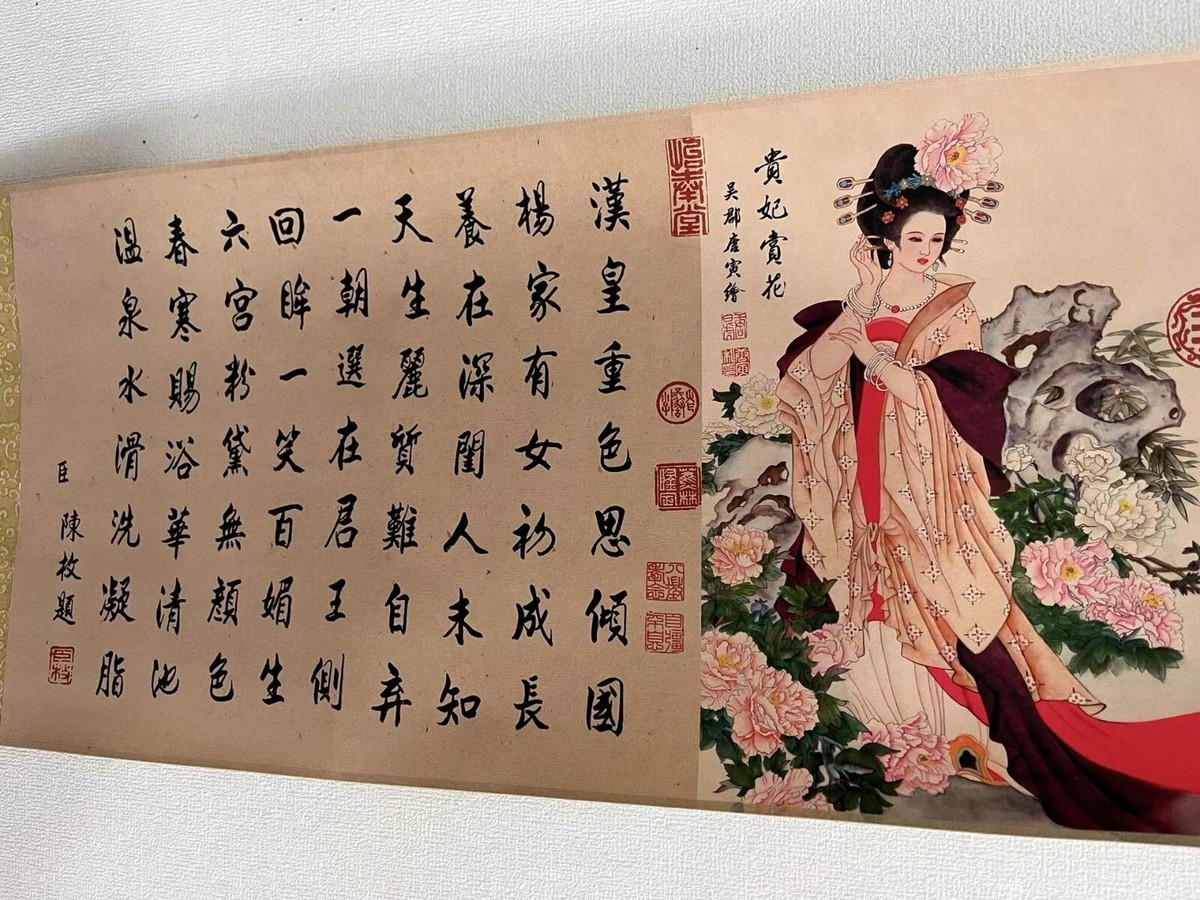 貴妃賞花
吳郡唐寅繪
漢皇重色思傾國
楊家有女初成長
養在深閨人未知
天生麗質難自弃
一朝選在君王側
回眸一笑百媚生
六宮粉黛無顏色
春寒賜浴華清池
溫泉水滑洗凝脂
臣陳枚題
臣枚